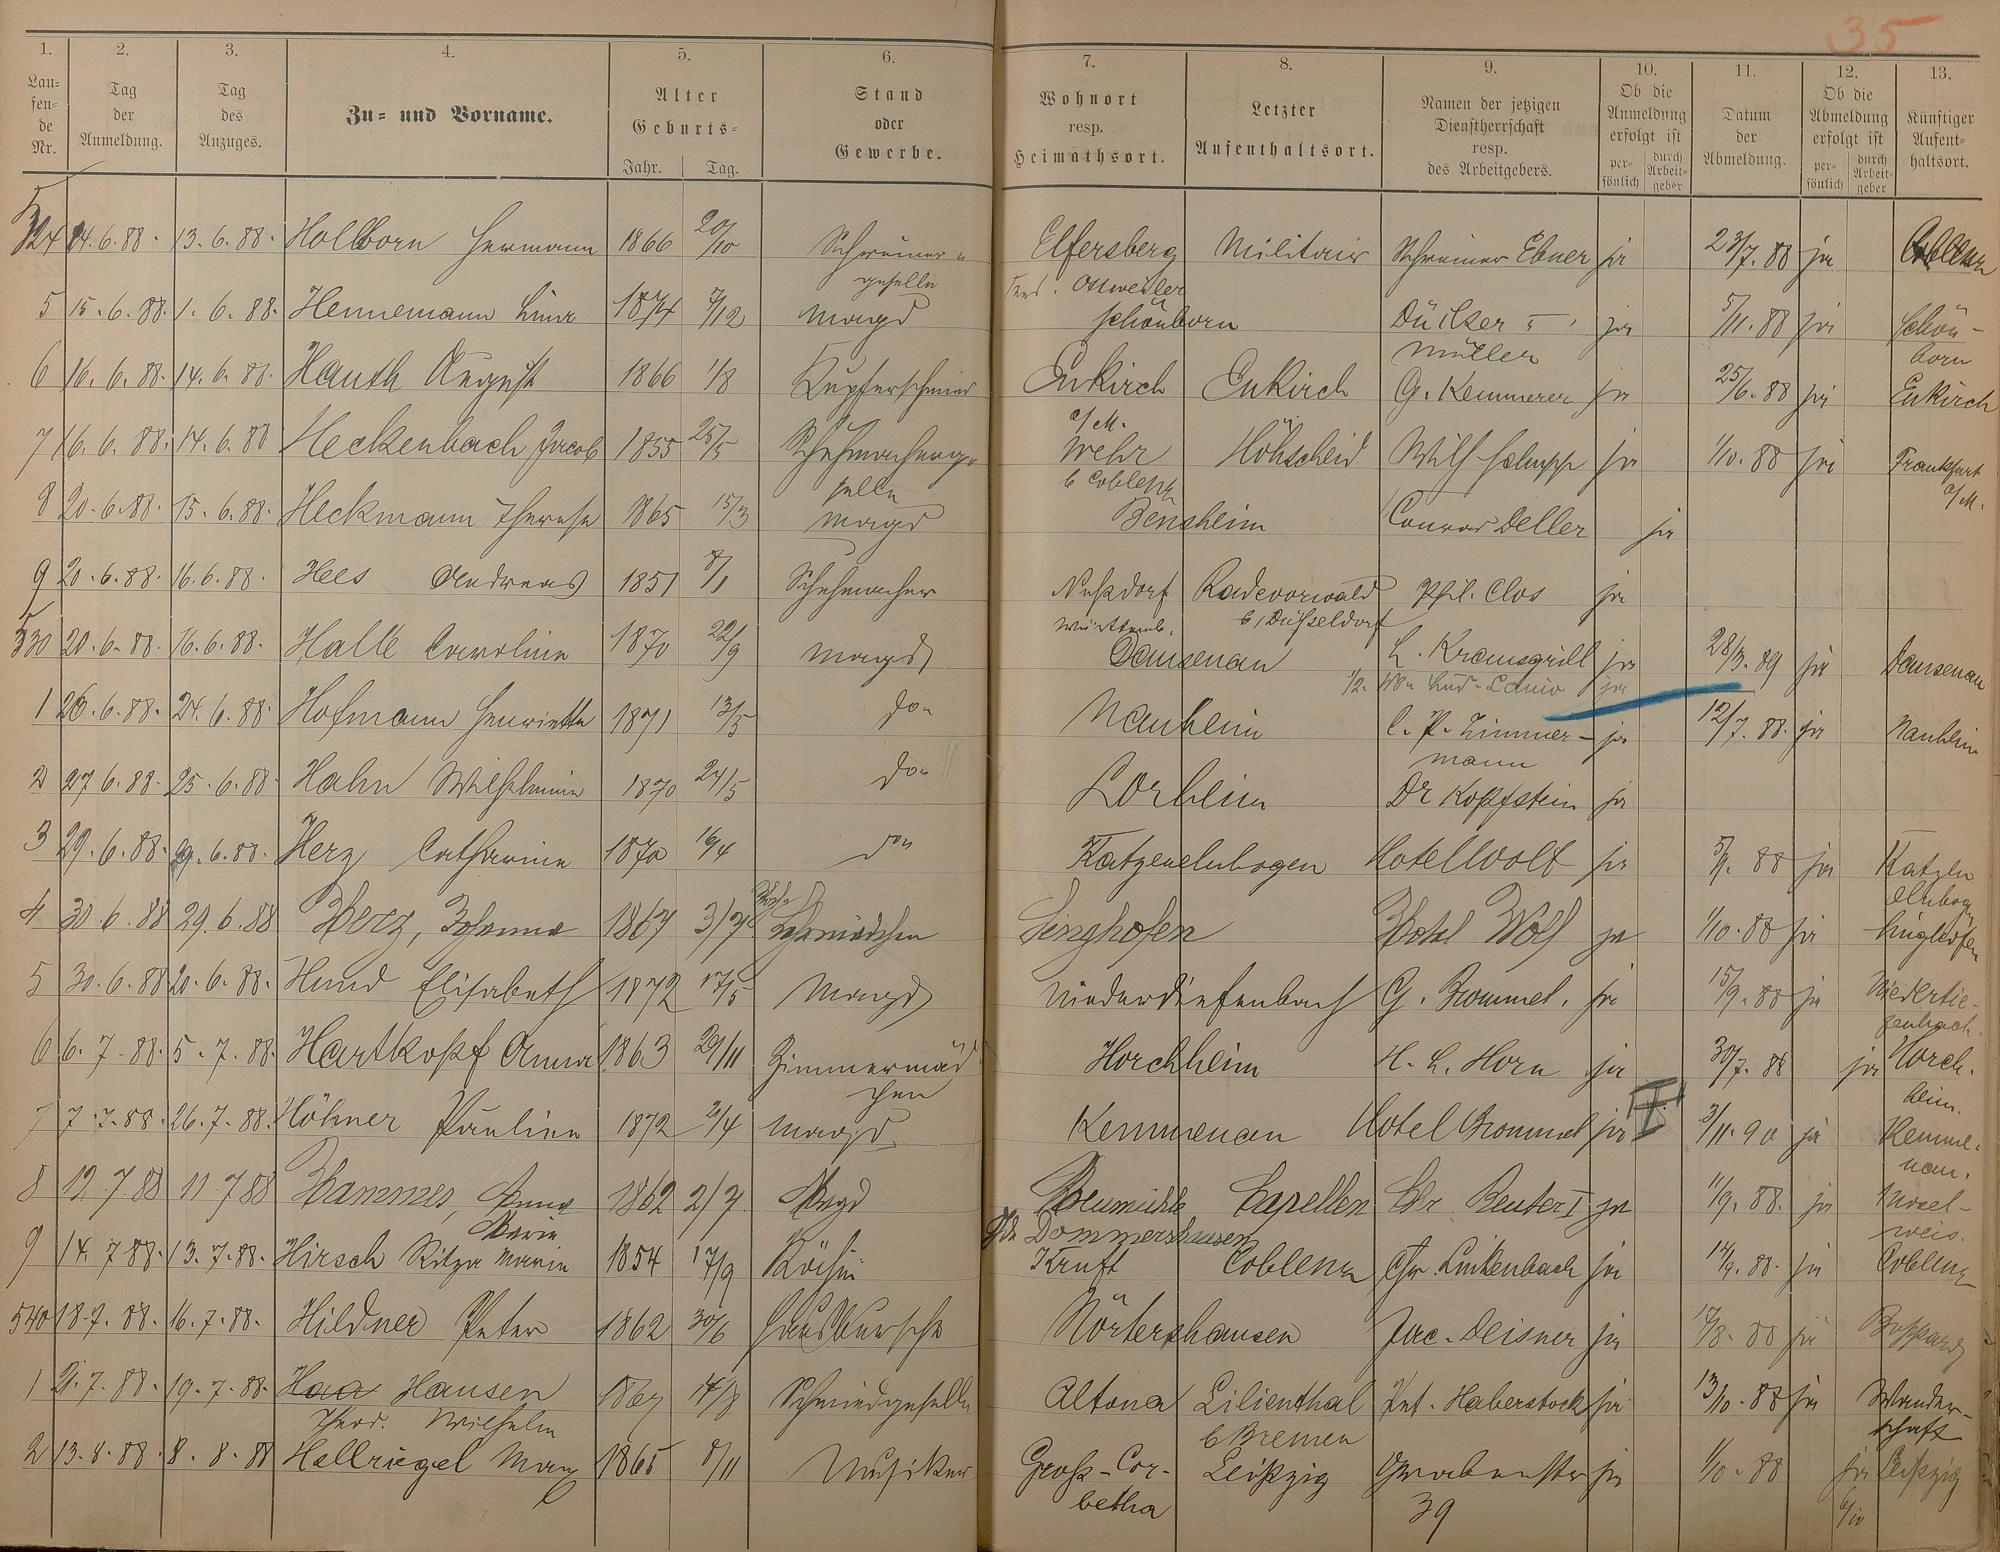 35
1. 2. 3. 4. 5. 6. 7. 8. 9. 10. 11. 12. 13.
Lau=
fen=
de
Nr.
Tag
der
Anmeldung.
Tag
des
Anzuges.
Zu= und Vorname.
Alter
Geburts=
Jahr. Tag.
Stand
oder
Gewerbe.
Wohnort
resp.
Heimathsort.
Letzter
Aufenthaltsort.
Namen der jetzigen
Dienstherrschaft
resp.
des Arbeitgebers.
Ob die
Anmeldung
erfolgt ist
per=
sönlich
durch
Arbeit=
geber
Datum
der
Abmeldung.
Ob die
Abmeldung
erfolgt ist
per=
sönlich
durch
Arbeit=
geber
Künftiger
Aufent=
haltsort.
524 14.6.88. 13.6.88. Hollborn Hermann 1866 20/10 Schreiner= Elfersberg Militair Schreiner Ebner ja 23/7.88 ja Coblenz
geselle Ottweiler
5 15.6.88. 1.6.88. Hennemann Lina 1874 7/12 Magd Schönborn Dücker ja 5/11.88 ja Schön-
Müller born
6 16.6.88. 14.6.88. Hauth August 1866 1/8 Kupferschmied Enkirch Enkirch G. Kemmerer ja 25/6.88 ja Enkirch
a/M.
7 16.6.88. 14.6.88 Heckenbach Jacob 1855 25/5 Schuhmacherge Wehr Höhscheid Wilh Schupp ja 1/10.88 ja Frankfurt
selle b Coblenz a/M.
8 20.6.88. 15.6.88. Heckmann Therese 1865 15/3 Magd Bensheim Conrad Deller ja
9 20.6.88. 16.6.88. Hees Andreas 1851 8/1 Schuhmacher Nußdorf Radevorwald Phil. Clos ja
Württemb. b/Düsseldorf
530 20.6.88. 16.6.88. Halle Caroline 1870 22/9 Magd Dausenau L. Kramgrill ja 28/3.89 ja Dausenau
1 26.6.88. 24.6.88. Hofmann Henriette 1871 13/5 do Nauheim C. P. Zimmer- ja 12/7.88. ja Nauheim
mann
2 27.6.88. 25.6.88. Hahn Wilhelmine 1870 24/5 do Lorheim Dr Kopfstein ja
3 29.6.88. 9.6.88. Herz Catharine 1870 16/4 do Katzenelnbogen Hotel Wolf ja 88 ja Katzen
elnbogn
4 30.6.88 29.6.88 Herz, Johanna 1867 3/7 Lehrmädchen Singhofen Hotel Wolf ja 1/10.88 ja Singhofen
5 30.6.88 20.6.88. Hund Elisabeth 1872 17/5 Magd Niederdiefenbach G. Bommel. ja 15/9.88 ja Niedertie-
fenbach.
6 6.7.88. 5.7.88. Hartkopf Anna 1863 29/11 Zimmermäd Horchheim H. L. Horn ja 30/7.88 ja Horch.
chen heim.
7 7.7.88. 26.7.88. Höhner Pauline 1872 2/4 Magd Kemmenau Hotel Bommel ja 3/11.90 ja Kemme.
nau.
8 12.7.88 11.7.88 Hammes, Anna 1862 2/7 Magd Capellen Chr. Reuter I ja 11/9.88. ja Mosel-
Maria Dommershausen weis.
9 14.7.88. 13.7.88. Hirsch Ritza Maria 1854 17/9 Köchin Kruft Coblenz Chr. Linkenbach ja 14/9.88. ja Coblenz
540 18.7.88. 16.7.88. Hildner Peter 1862 30/6 Hausbursche Nörtershausen Jac. Deisner ja 17/8.88 ja Boppard
1 21.7.88. 19.7.88. Haa Hansen 1867 14/8 Schmiedgeselle Altona Lilienthal Pet. Haberstock ja 13/10.88 ja Wander-
Theod. Wilhelm b Bremen schaft
2 13.8.88. 8.8.88 Hellriegel Max 1865 8/11 Musiker Groß-Cor- Leipzig Grabenstr ja 1/10.88 ja Leipzig
betha 39 6/10